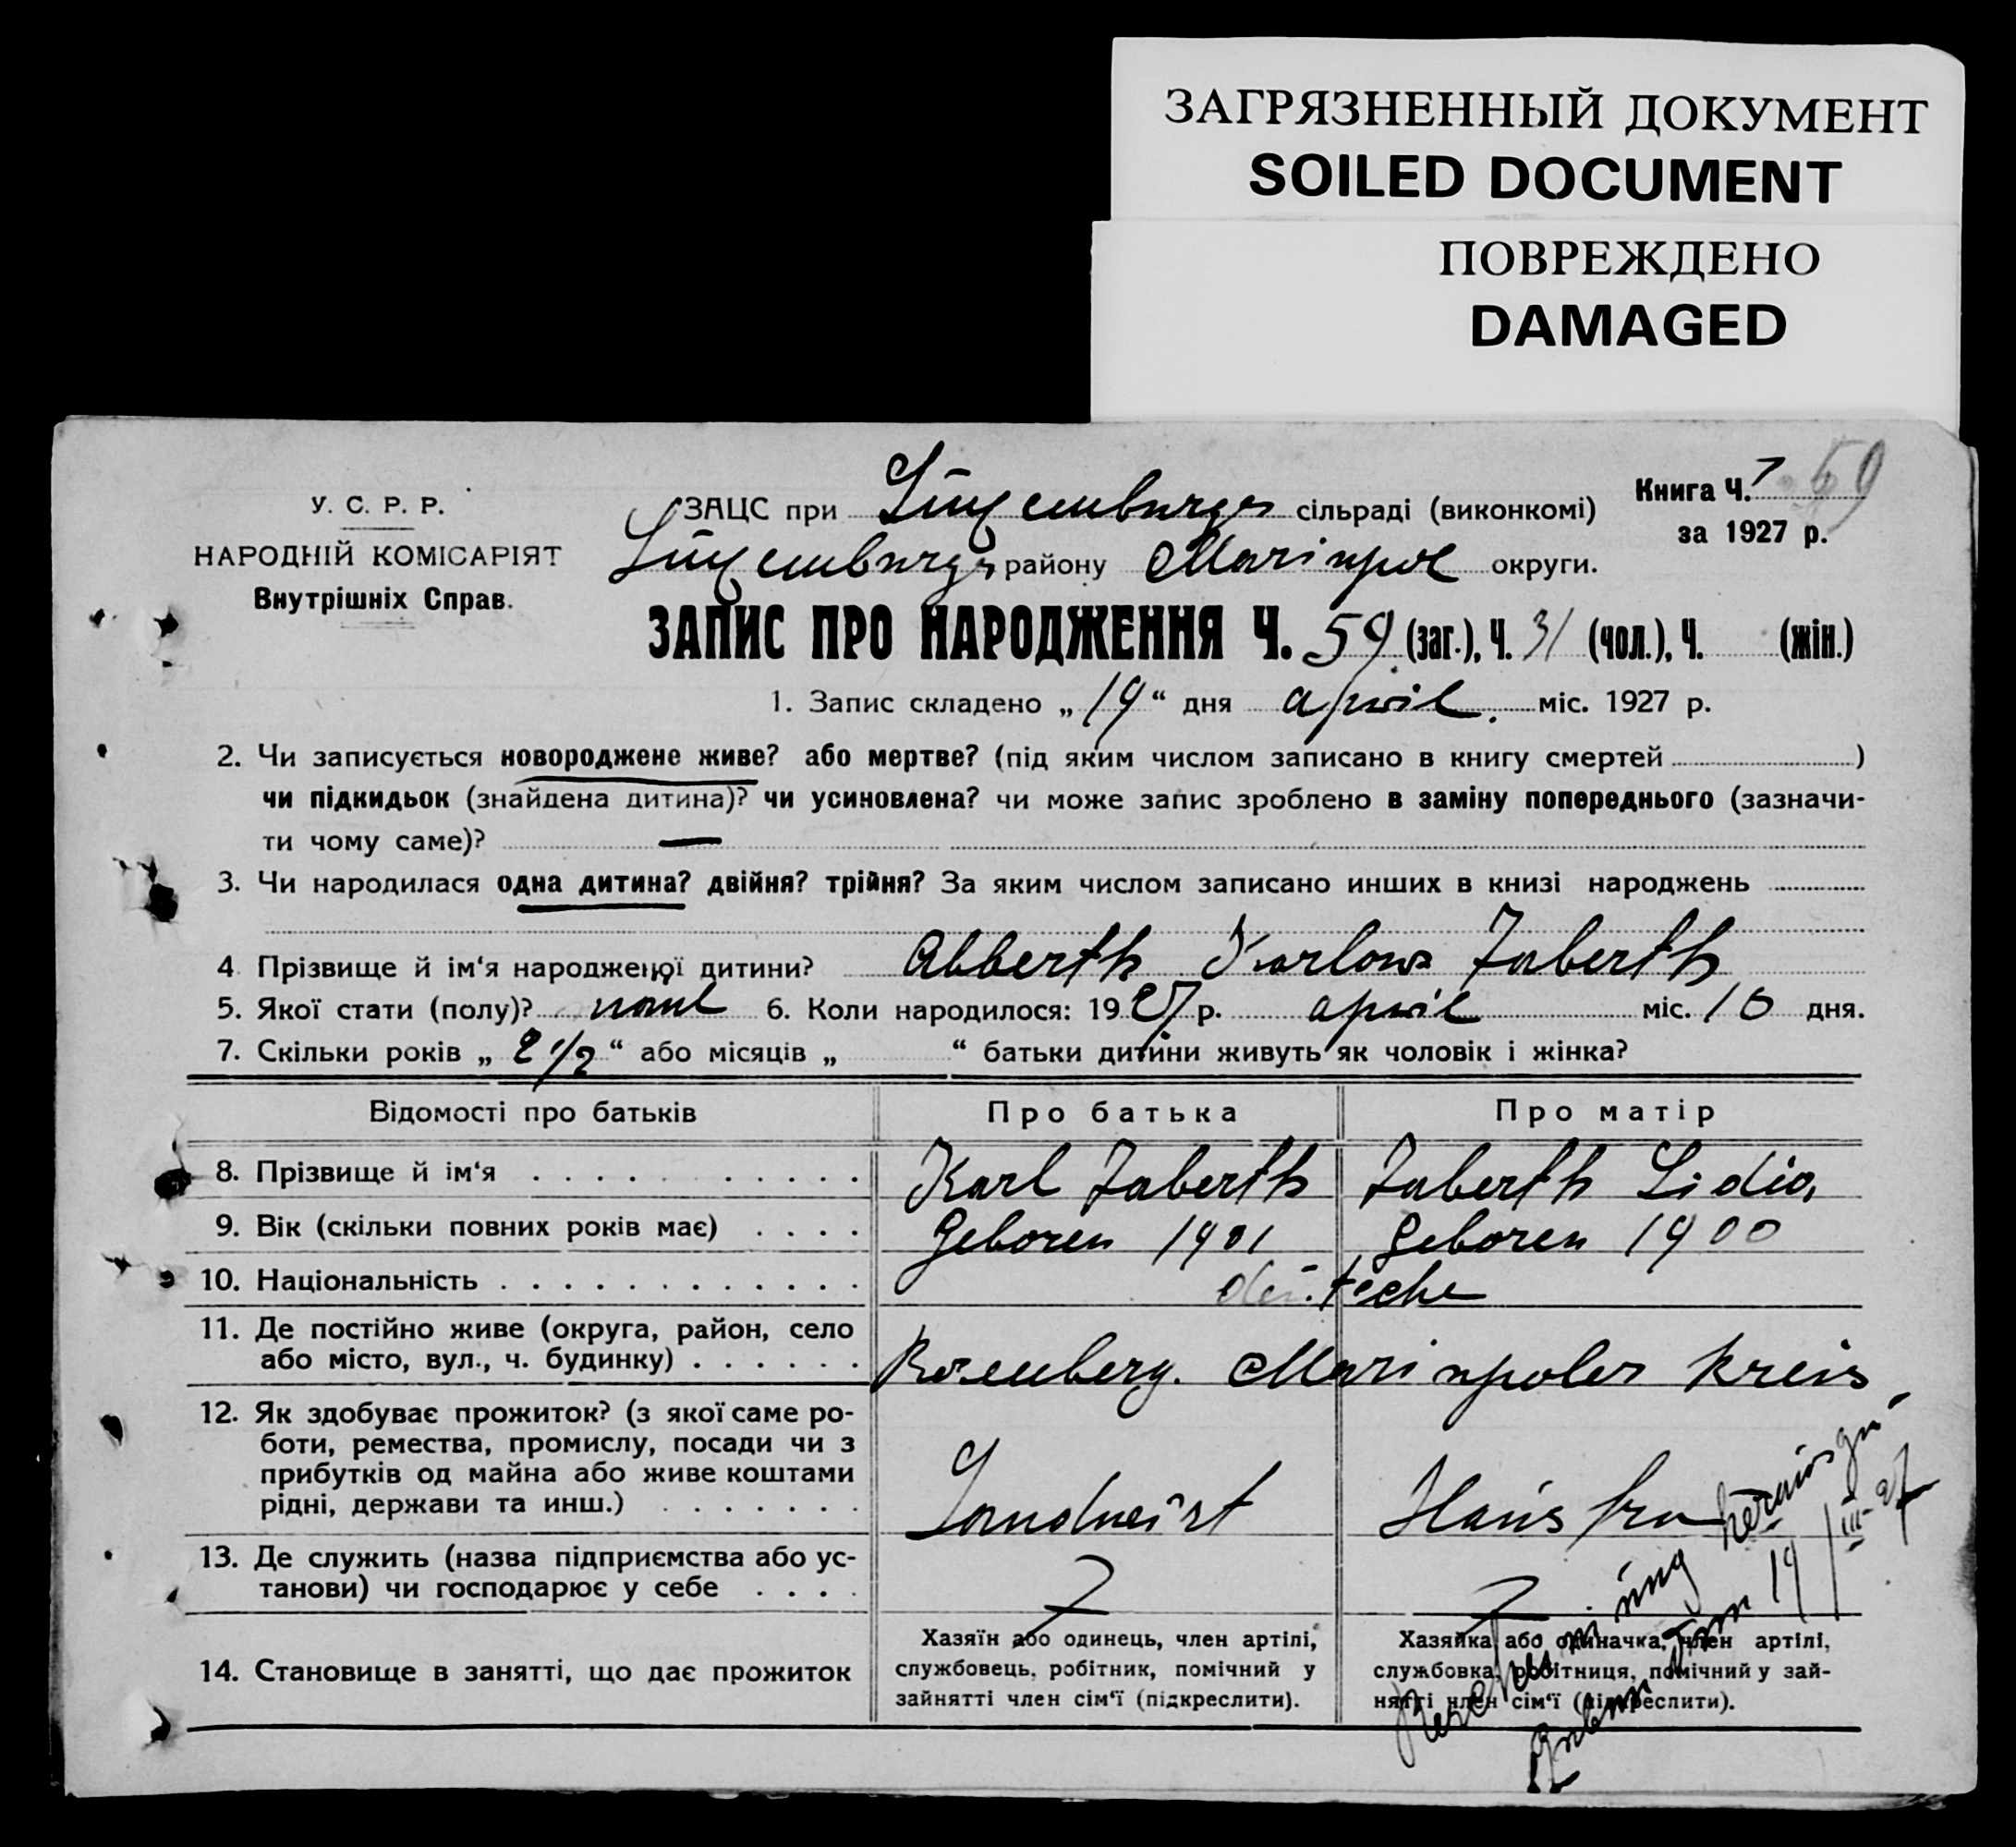 ЗАГРЯЗНЕННЫЙ ДОКУМЕНТ
SOILED DOCUMENT
ПОВРЕЖДЕНО
DAMAGED
У. С. Р. Р.
НАРОДНІЙ КОМІСАРІЯТ
Внутрішніх Справ.
ЗАЦС при Lüxemburger сільраді (виконкомі)
Lüxemburger району Mariupol округи.
Книга Ч. 7 59
за 1927 р.
ЗАПИС ПРО НАРОДЖЕННЯ Ч. 59 (заг.), Ч. 31 (чол.), Ч. (жін.)
1. Запис складено „ 19 “ дня april. міс. 1927 р.
2. Чи записується новороджене живе? або мертве? (під яким числом записано в книгу смертей )
чи підкидьок (знайдена дитина)? чи усиновлена? чи може запис зроблено в заміну попереднього (зазначи-
ти чому саме)? —
3. Чи народилася одна дитина? двійня? трійня? За яким числом записано инших в книзі народжень
4 Прізвище й ім‘я народженої дитини? Abberth Karlow Jaberth
5. Якої стати (полу)? 6. Коли народилося: 1927 р. april міс. 10 дня.
7. Скільки років „ 2 1/2 “ або місяців „ “ батьки дитини живуть як чоловік і жінка?
Відомості про батьків Про батька Про матір
8. Прізвище й ім‘я Karl Jaberth Jaberth Lidia
9. Вік (скільки повних років має) Geboren 1901 Geboren 1900
10. Національність deutsche
11. Де постійно живе (округа, район, село
або місто, вул., ч. будинку) Rosenberg. Mariupoler Kreis
12. Як здобуває прожиток? (з якої саме ро-
боти, ремества, промислу, посади чи з
прибутків од майна або живе коштами
рідні, держави та инш.) Landwirt Hausfrau
13. Де служить (назва підприємства або ус-
танови) чи господарює у себе
14. Становище в занятті, що дає прожиток
Хазяїн або одинець, член артілі,
службовець, робітник, помічний у
зайнятті член сім‘ї (підкреслити).
Хазяйка або одиначка, член артілі,
службовка, робітниця, помічний у зай-
нятті член сім‘ї (підкреслити).
19/III-27